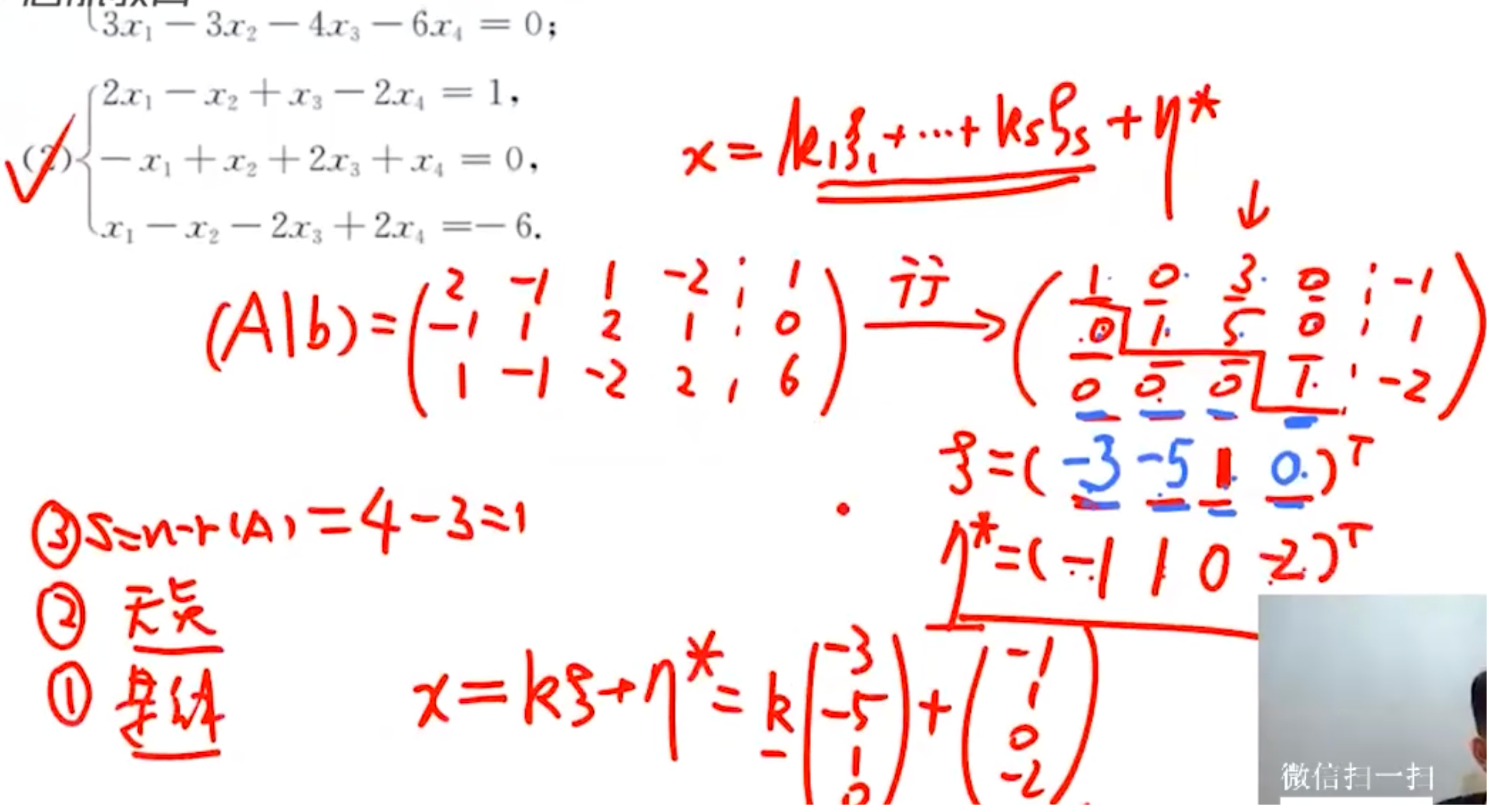 3x₁ − 3x₂ − 4x₃ − 6x₄ = 0;
(2) 2x₁ − x₂ + x₃ − 2x₄ = 1,
−x₁ + x₂ + 2x₃ + x₄ = 0,
x₁ − x₂ − 2x₃ + 2x₄ = −6.
x = k₁ξ₁ + ⋯ + ksξs + η*
↓
(A|b) = ( 2 -1 1 -2 ¦ 1 ) 行 → ( 1 0 3 0 ¦ -1 )
( -1 1 2 1 ¦ 0 ) ( 0 1 5 0 ¦ 1 )
( 1 -1 -2 2 ¦ 6 ) ( 0 0 0 1 ¦ -2 )
ξ = ( -3 -5 1 0 )ᵀ
η* = ( -1 1 0 -2 )ᵀ
③ S=n-r(A) = 4-3=1
②
①
x = kξ + η* = k ( -3 ) + ( -1 )
( -5 ) ( 1 )
( 1 ) ( 0 )
( 0 ) ( -2 )
微信扫一扫